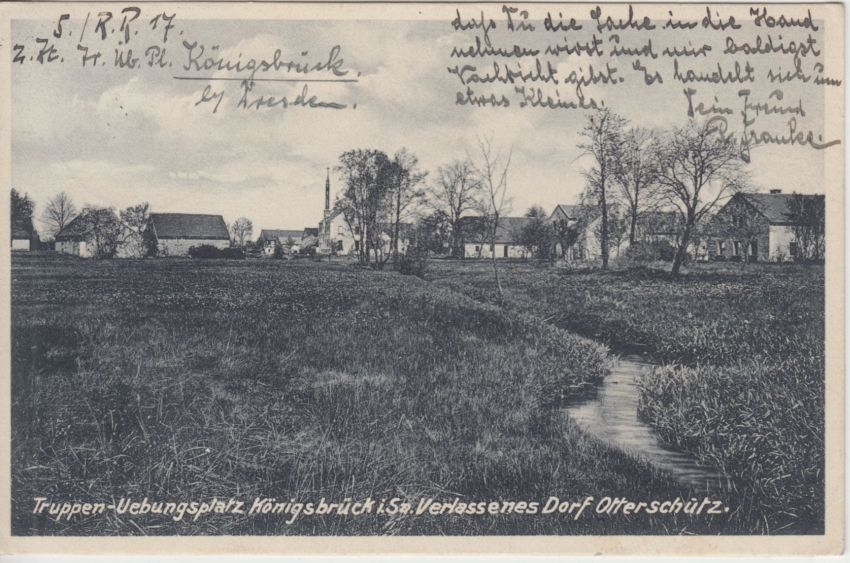 5./R.R. 17.
z. Zt. Tr. Üb. Pl. Königsbrück.
by Dresden.
daß Du die Sache in die Hand
nehmen wirst und mir baldigst
Nachricht gibst. Es handelt sich um
etwas Kleines. Dein Freund
Franke.
Truppen-Uebungsplatz Königsbrück i. Sa. Verlassenes Dorf Otterschütz.